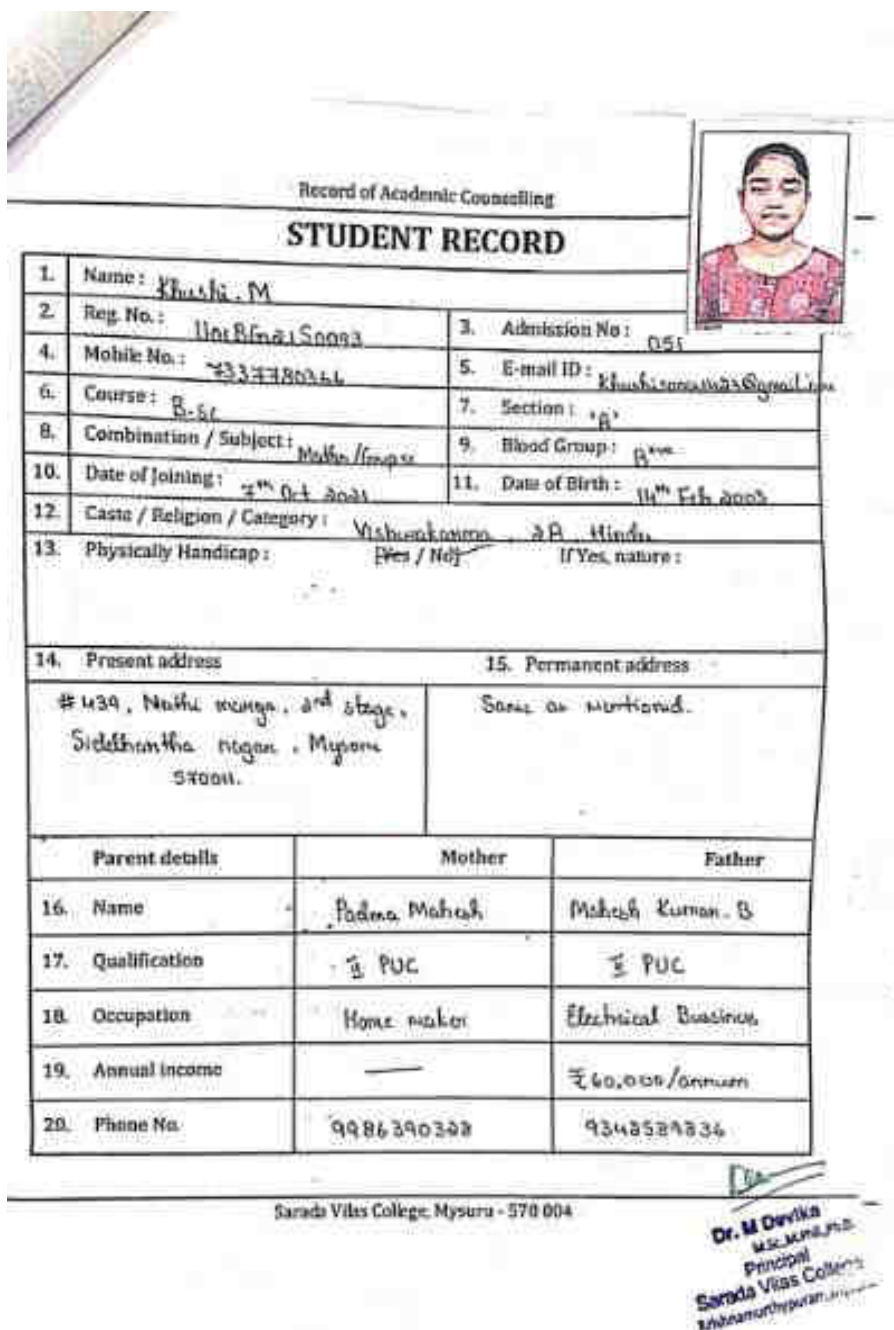 Record of Academic Counselling
STUDENT RECORD
1. Name : Khushi . M
2. Reg. No. :
3. Admission No :
4. Mobile No. :
5. E-mail ID :
6. Course : B.Sc
7. Section : 'A'
8. Combination / Subject : Maths /
9. Blood Group :
10. Date of Joining : 7th Oct 2021
11. Date of Birth : 14th Feb 2003
12. Caste / Religion / Category : Vishwakarma , 2A , Hindu
13. Physically Handicap : [Yes / No] If Yes, nature :
14. Present address
15. Permanent address
#439, , 2nd stage,
Siddhantha nagar , Mysore
570011.
Same as mentioned.
Parent details Mother Father
16. Name Padma Mahesh Mahesh Kumar. B
17. Qualification II PUC II PUC
18. Occupation Home maker Electrical Bussiness
19. Annual income — ₹60,000/annum
20. Phone No. 9986390328
Sarada Vilas College, Mysuru - 570 004
Dr. M Devika
M.Sc.,M.Phil.,Ph.D.
Principal
Sarada Vilas College